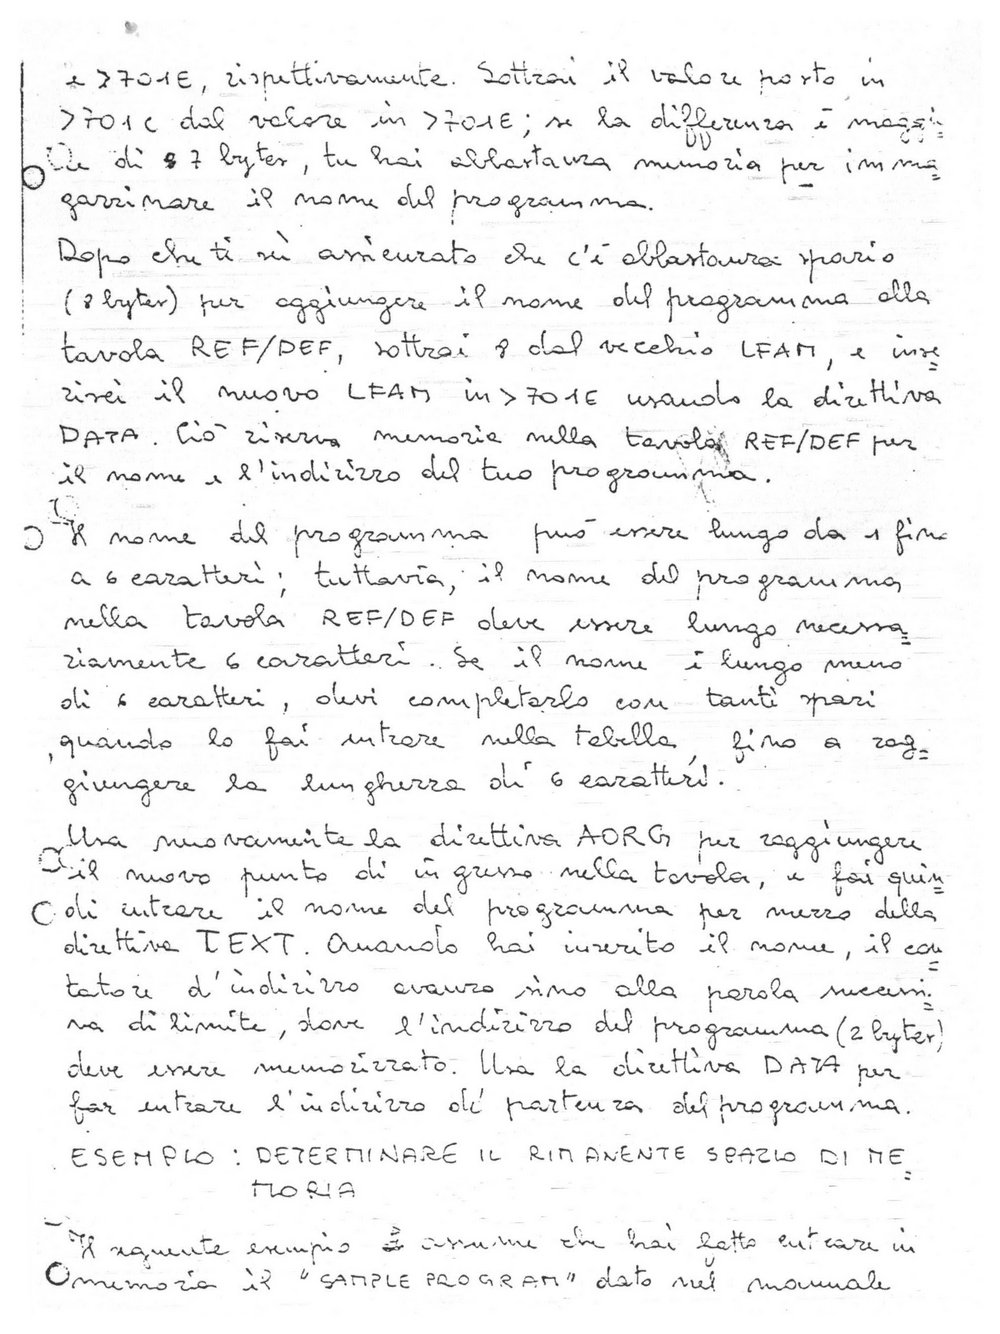 e >701E, rispettivamente. Sottrai il valore posto in
>701C dal valore in >701E; se la differenza è maggio=
re di 7 bytes, tu hai abbastanza memoria per imma=
gazzinare il nome del programma.
Dopo che ti sei assicurato che c'è abbastanza spazio
(8 bytes) per aggiungere il nome del programma alla
tavola REF/DEF, sottrai 8 dal vecchio LFAM, e inse=
risci il nuovo LFAM in >701E usando la direttiva
DATA. Ciò riserva memoria nella tavola REF/DEF per
il nome e l'indirizzo del tuo programma.
Il nome del programma può essere lungo da 1 fino
a 6 caratteri; tuttavia, il nome del programma
nella tavola REF/DEF deve essere lungo necessa=
riamente 6 caratteri. Se il nome è lungo meno
di 6 caratteri, devi completarlo con tanti spazi
quando lo fai entrare nella tabella, fino a rag=
giungere la lunghezza di 6 caratteri.
Usa nuovamente la direttiva AORG per raggiungere
il nuovo punto di ingresso nella tavola, e fai quin=
di entrare il nome del programma per mezzo della
direttiva TEXT. Quando hai inserito il nome, il con=
tatore d'indirizzo avanza sino alla parola successi=
va di limite, dove l'indirizzo del programma (2 bytes)
deve essere memorizzato. Usa la direttiva DATA per
far entrare l'indirizzo di partenza del programma.
ESEMPIO : DETERMINARE IL RIMANENTE SPAZIO DI ME=
MORIA
Il seguente esempio assume che hai fatto entrare in
memoria il "SAMPLE PROGRAM" dato nel manuale